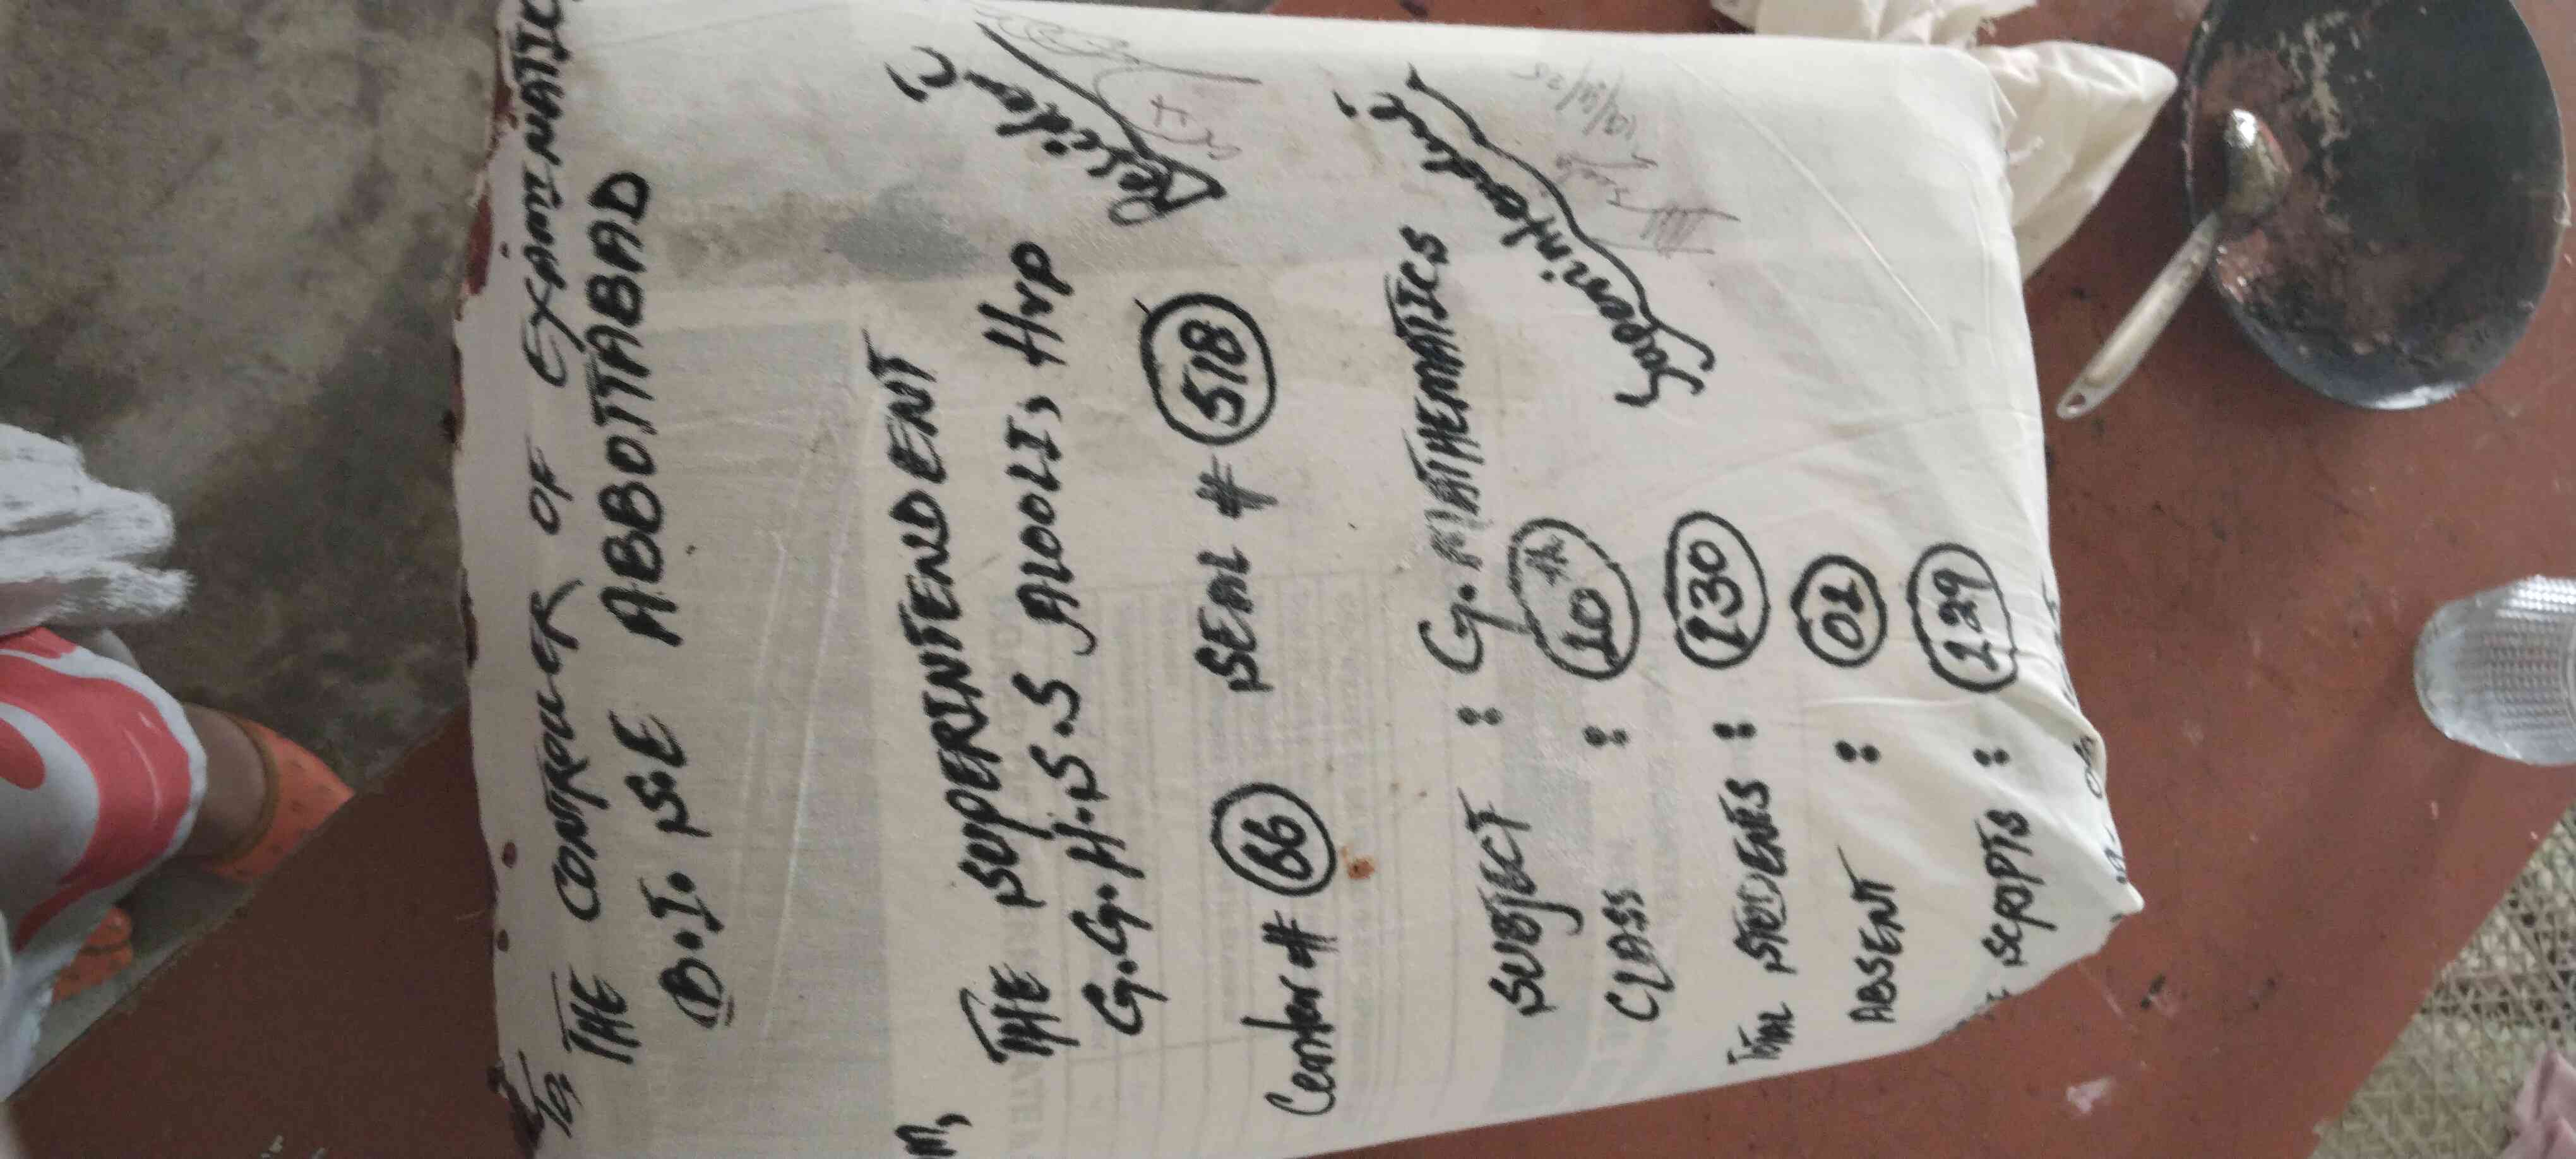 To,
THE CONTROLLER OF EXAMINATION
B.I.SE ABBOTTABAD
m,
THE SUPERINTENDENT
G.G.H.S.S ALOOLI, HVP
Center # 66 SEAL # 518
Resider
SUBJECT : G. MATHEMATICS
CLASS : 10th
TOTAL STUDENTS : 130
ABSENT : 01
SCRPTS : 129
Superintendent